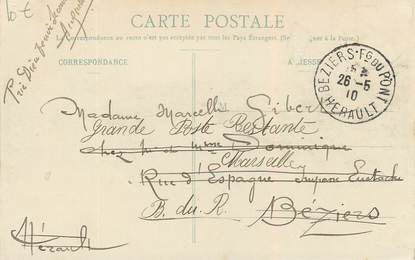 6€
CARTE POSTALE
La Correspondance au recto n'est pas acceptée par tous les Pays Étrangers. (Se à la Poste).
CORRESPONDANCE
ADRESSE
BEZIERS-FG DU PONT
26-5
10
HERAULT
Prie Dieu pour
Madame Marcelle Gibert
Grande Poste Restante
chez M. et Mme Dominique
Marseille
Rue d'Espagne Impasse Eustache
B. du R.
Béziers
Hérault